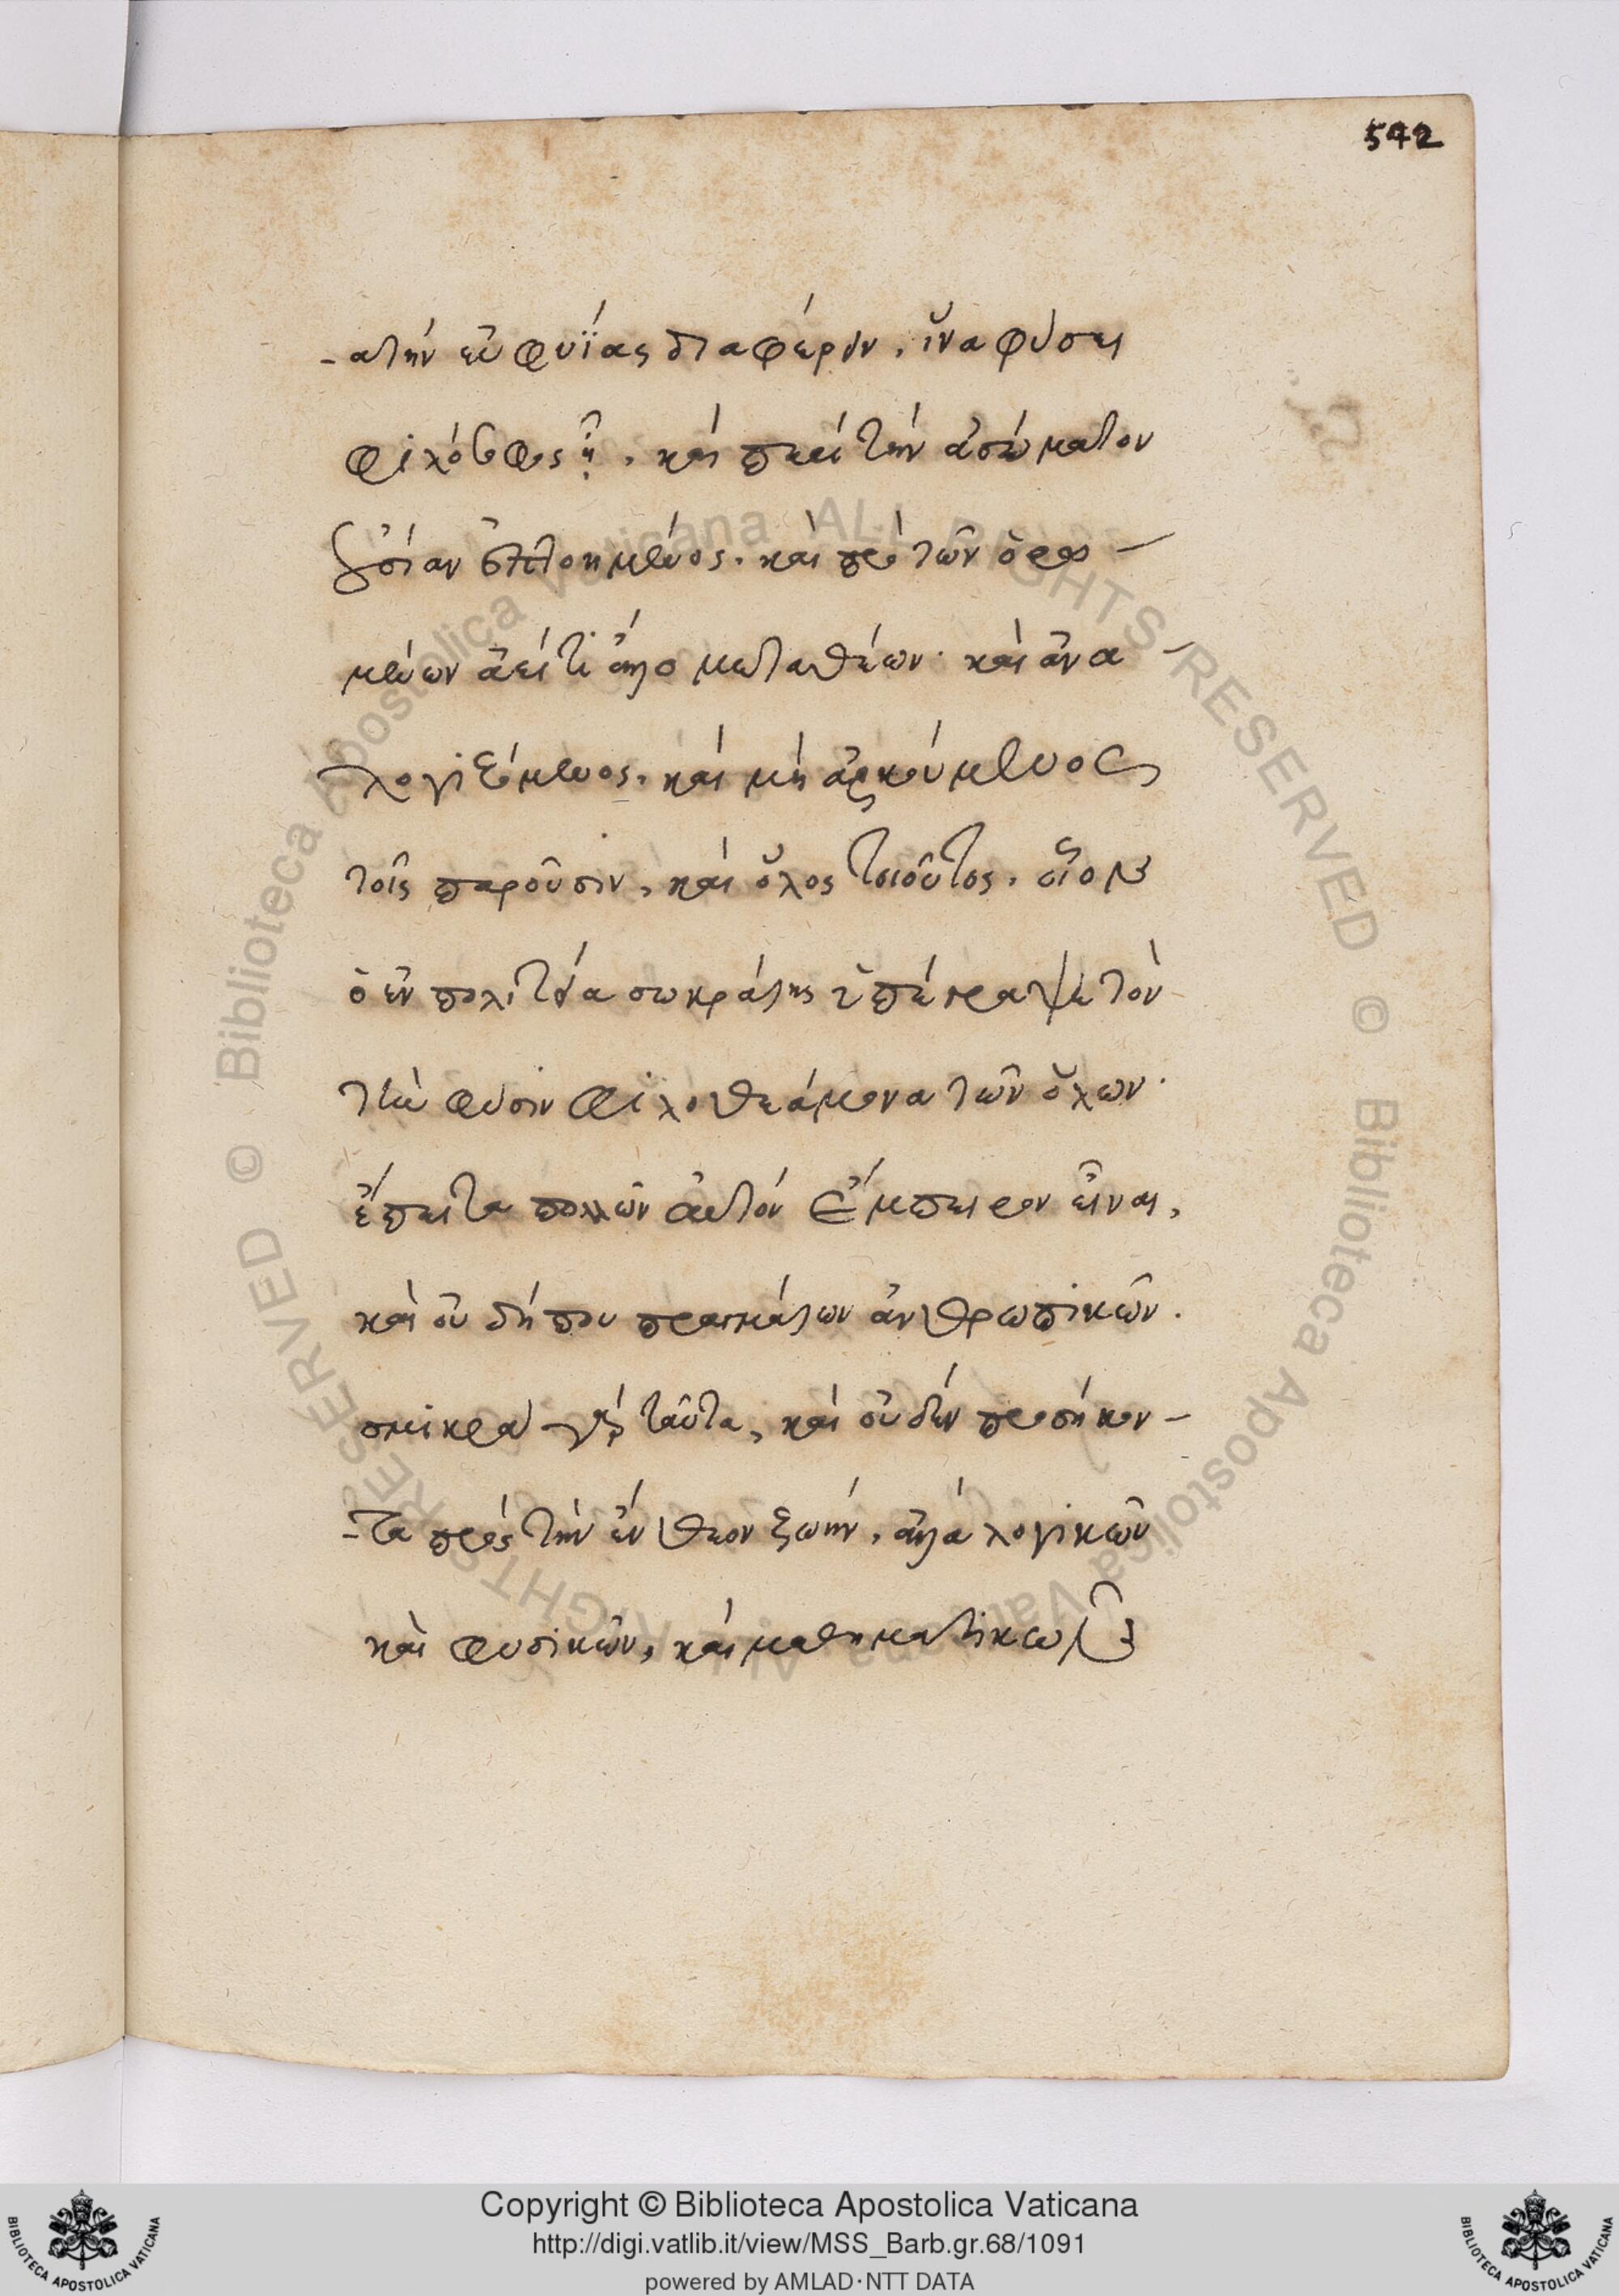 542
-α τὴν εὐφυΐας διαφέρειν, ἵνα φύσει
φιλόσοφος ᾖ, καὶ περὶ τὴν ἀσώματον
οὐσίαν ἐπτοημένος. καὶ πρὸ τῶν ὁρω-
μένων ἀεί τι ἄλλο μεταθέων· καὶ ἀνα-
λογιζόμενος. καὶ μὴ ἀρκούμενος
τοῖς παροῦσιν, καὶ ὅλος τοιοῦτος. οἷον
ὁ ἐν πολιτεία σωκράτης ὑπέγραψε τὸν
τὴν φύσιν φιλοθεάμονα τῶν ὅλων·
ἔπειτα πολλῶν αὐτὸν ἔμπειρον εἶναι,
καὶ οὐ δήπου πραγμάτων ἀνθρωπικῶν.
σμικρὰ γὰρ ταῦτα, καὶ οὐδὲν προσήκον-
-τα πρὸς τὴν ἔνθεον ζωήν. ἀλλὰ λογικῶν
καὶ φυσικῶν, καὶ μαθηματικῶν
Copyright © Biblioteca Apostolica Vaticana
http://digi.vatlib.it/view/MSS_Barb.gr.68/1091
powered by AMLAD·NTT DATA
BIBLIOTECA APOSTOLICA VATICANA
BIBLIOTECA APOSTOLICA VATICANA
© Biblioteca Apostolica Vaticana ALL RIGHTS RESERVED © Biblioteca Apostolica Vaticana ALL RIGHTS RESERVED